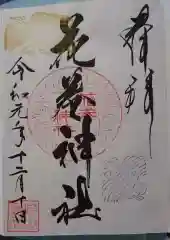 奉拝
花巻神社
令和元年十二月十日